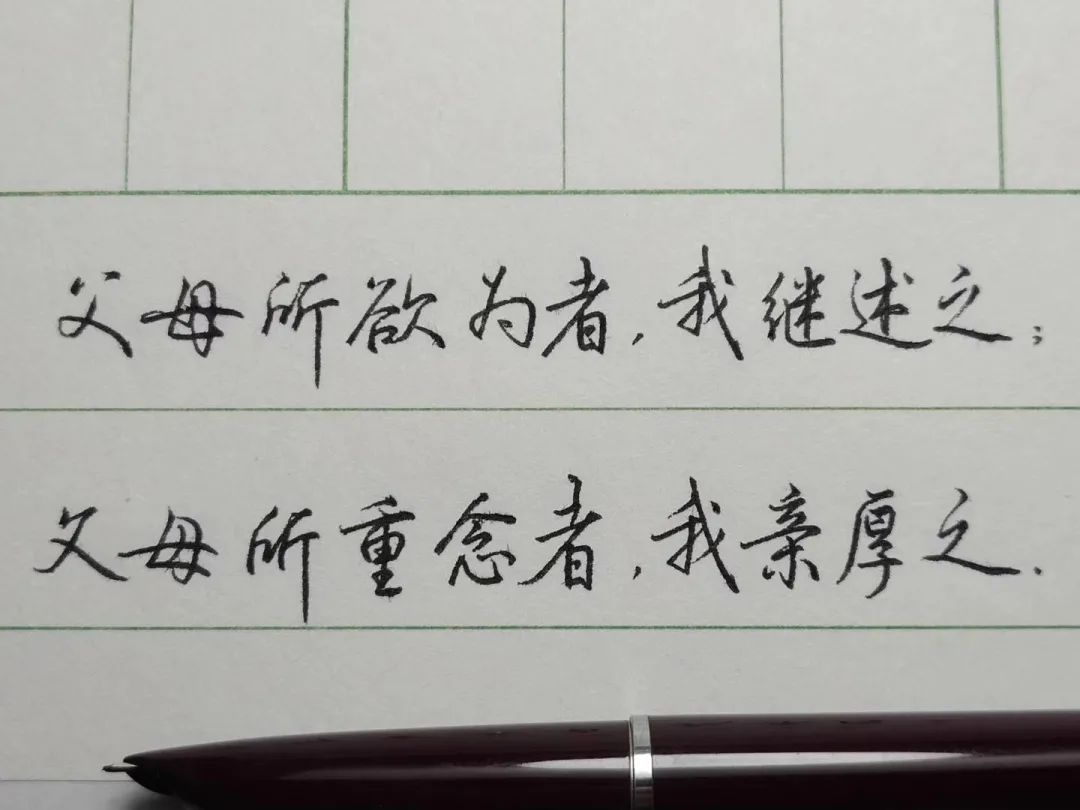 父母所欲为者,我继述之;
父母所重念者,我亲厚之.